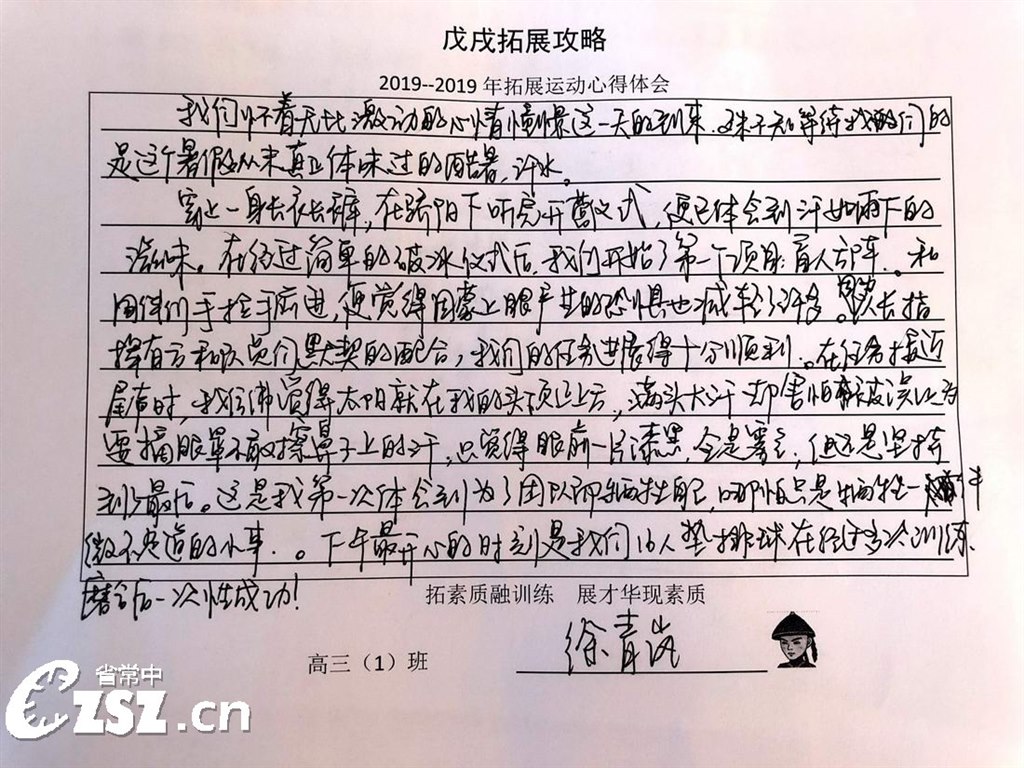 戊戌拓展攻略
2019--2019年拓展运动心得体会
我们怀着无比激动的心情憧憬这一天的到来。殊不知等待我们的
是这个暑假从未真正体味过的酷暑、汗水。
穿上一身长衣长裤,在骄阳下听完开营仪式,便已体会到汗如雨下的
滋味。在经过简单的破冰仪式后,我们开始了第一个项目:盲人 。和
同伴们手拉手前进,便觉得因蒙上眼产生的恐惧也减轻了许多。队长指
挥有方和队员们默契的配合,我们的任务进展得十分顺利。在任务接近
尾声时,我仿佛觉得太阳就在我的头顶正上方,满头大汗却害怕被误认为
要摘眼罩不敢擦鼻子上的汗,只觉得眼前一片漆黑,全是雾气,但还是坚持
到了最后。这是我第一次体会到为了团队而牺牲自己,哪怕只是牺牲一件
微不足道的小事。下午最开心的时刻是我们16人垫排球在经过多次训练、
磨合后一次性成功!
拓素质融训练 展才华现素质
高三(1)班 徐青岚
省常中
CZSZ.cn